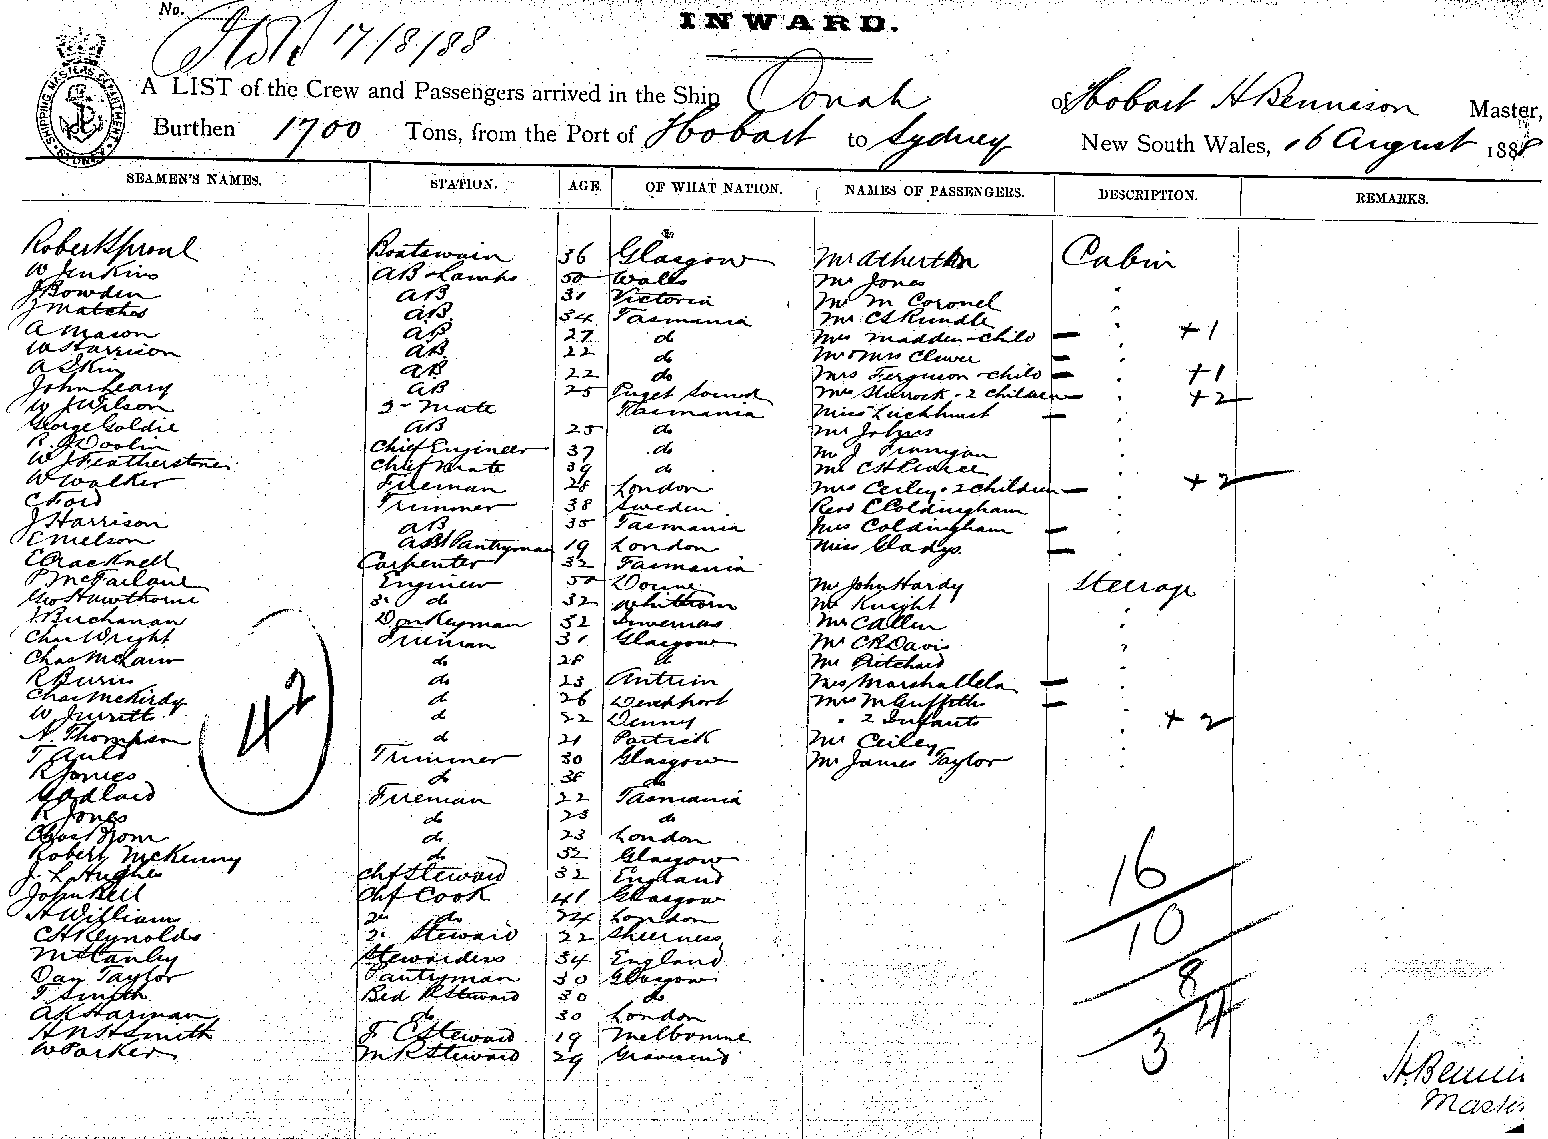 INWARD.
No.
17/8/88
SHIPPING MASTERS DEPARTMENT SYDNEY
A LIST of the Crew and Passengers arrived in the Ship Oonah of Hobart H Bennison Master,
Burthen 1700 Tons, from the Port of Hobart to Sydney New South Wales, 16 August 1888
SEAMEN'S NAMES. STATION. AGE. OF WHAT NATION. NAMES OF PASSENGERS. DESCRIPTION. REMARKS.
Robert Sproul Boatswain 36 Glasgow Mr Atherton Cabin
W Jenkins AB & Lamps 50 Wales Mr Jones "
J Bowden AB 31 Victoria Mr M Coronel "
J Matches AB 34 Tasmania Mr CS Rundle "
A Mason AB 27 do Mrs Madden - child — " +1
W Harrison AB 22 do Mr & Mrs Clewer — "
AB 22 do Mrs Ferguson - child — " +1
John Leary AB 25 Puget Sound Mrs 2 children — " +2
W J Wilson 2nd Mate Tasmania Miss Luckhurst — "
George Goldie AB 25 do Mr Johns "
R J Doolin Chief Engineer 37 do Mr J Finnigan "
W J Featherstone Chief Mate 39 do Mr CH Pearce "
W Walker Fireman 28 London Mrs Ceiley - 2 children — " +2
C Ford Trimmer 38 Sweden Revd E Coldingham "
J Harrison AB 35 Tasmania Mrs Coldingham — "
C Nielson AB & Pantryman 19 London Miss Gladys —
C Cracknell Carpenter 32 Tasmania
P McFarlane Engineer 50 Doune Mr John Hardy Steerage
Geo Hawthorne 3rd do 32 Whithorn Mr Knight "
J Buchanan Donkeyman 32 Inverness Mr Callen "
Chas Wright Fireman 31 Glasgow Mr CR Davis "
Chas McLaren do 28 do Mr Pritchard "
R Burns do 23 Antrim Mrs Marshall —
Chas McKirdy do 26 Devenport Mrs M Griffiths — "
W Jurritt do 22 Denny " 2 Infants " +2
N. Thompson do 21 Partick Mr Ceiley "
T Auld Trimmer 30 Glasgow Mr James Taylor "
R Jones do 38 do
G Adlard Fireman 22 Tasmania
R Jones do 23 do
Chas do 23 London
Robert McKenny do 52 Glasgow
J. L Hughes Chf Steward 32 England
John Bell Chf Cook 41 Glasgow
H Williams 2nd do 24 London
CH Reynolds 2nd Steward 22 Sheerness
M Stanley Stewardess 34 England
Dan Taylor Pantryman 30 Glasgow
T Smith Bed R Steward 30 do
AK Harman do 30 London
H N Smith F C Steward 19 Melbourne
W Parker M R Steward 29 Gravesend
42
16
10
8
4
3
H. Benni
Master